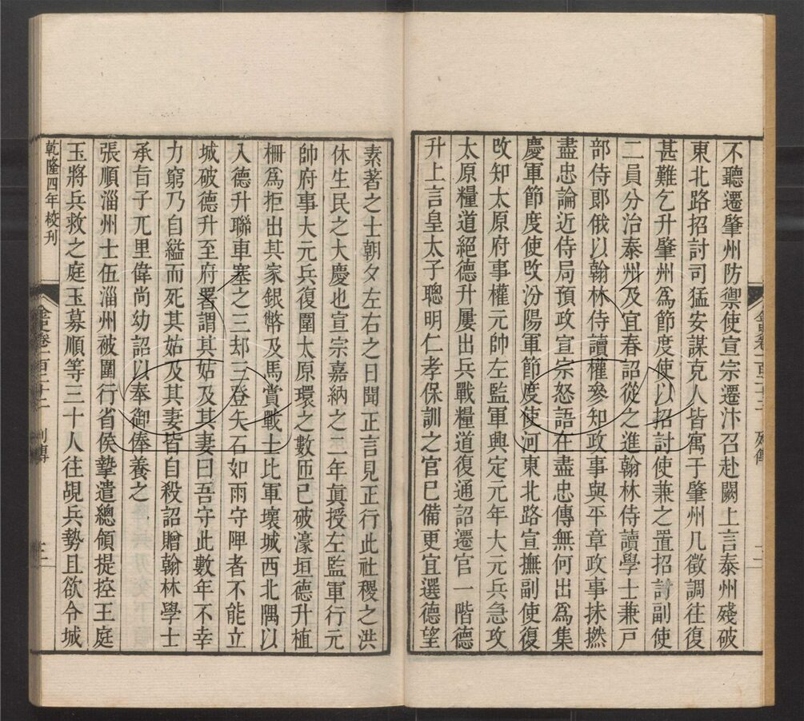 不聽遷肇州防禦使宣宗遷汴召赴闕上言泰州殘破
東北路招討司猛安謀克人皆寓于肇州凡徵調往復
甚難乞升肇州爲節度使以招討使兼之置招討副使
二員分治泰州及宜春詔從之進翰林侍讀學士兼戸
部侍郎俄以翰林侍讀權參知政事與平章政事抹撚
盡忠論近侍局預政宣宗怒語在盡忠傳無何出爲集
慶軍節度使改汾陽軍節度使河東北路宣撫副使復
改知太原府事權元帥左監軍興定元年大元兵急攻
太原糧道絕德升屢出兵戰糧道復通詔遷官一階德
升上言皇太子聰明仁孝保訓之官已備更宜選德望
素著之士朝夕左右之日聞正言見正行此社稷之洪
休生民之大慶也宣宗嘉納之二年眞授左監軍行元
帥府事大元兵復圍太原環之數匝已破濠垣德升植
柵爲拒出其家銀幣及馬賞戰士比軍壞城西北隅以
入德升聯車塞之三却三登矢石如雨守陴者不能立
城破德升至府署謂其姑及其妻曰吾守此數年不幸
力窮乃自縊而死其姑及其妻皆自殺詔贈翰林學士
承旨子兀里偉尚幼詔以奉御俸養之
張順淄州士伍淄州被圍行省侯摯遣總領提控王庭
玉將兵救之庭玉募順等三十人往覘兵勢且欲令城
乾隆四年校刊
金史卷一百二十二 列傳